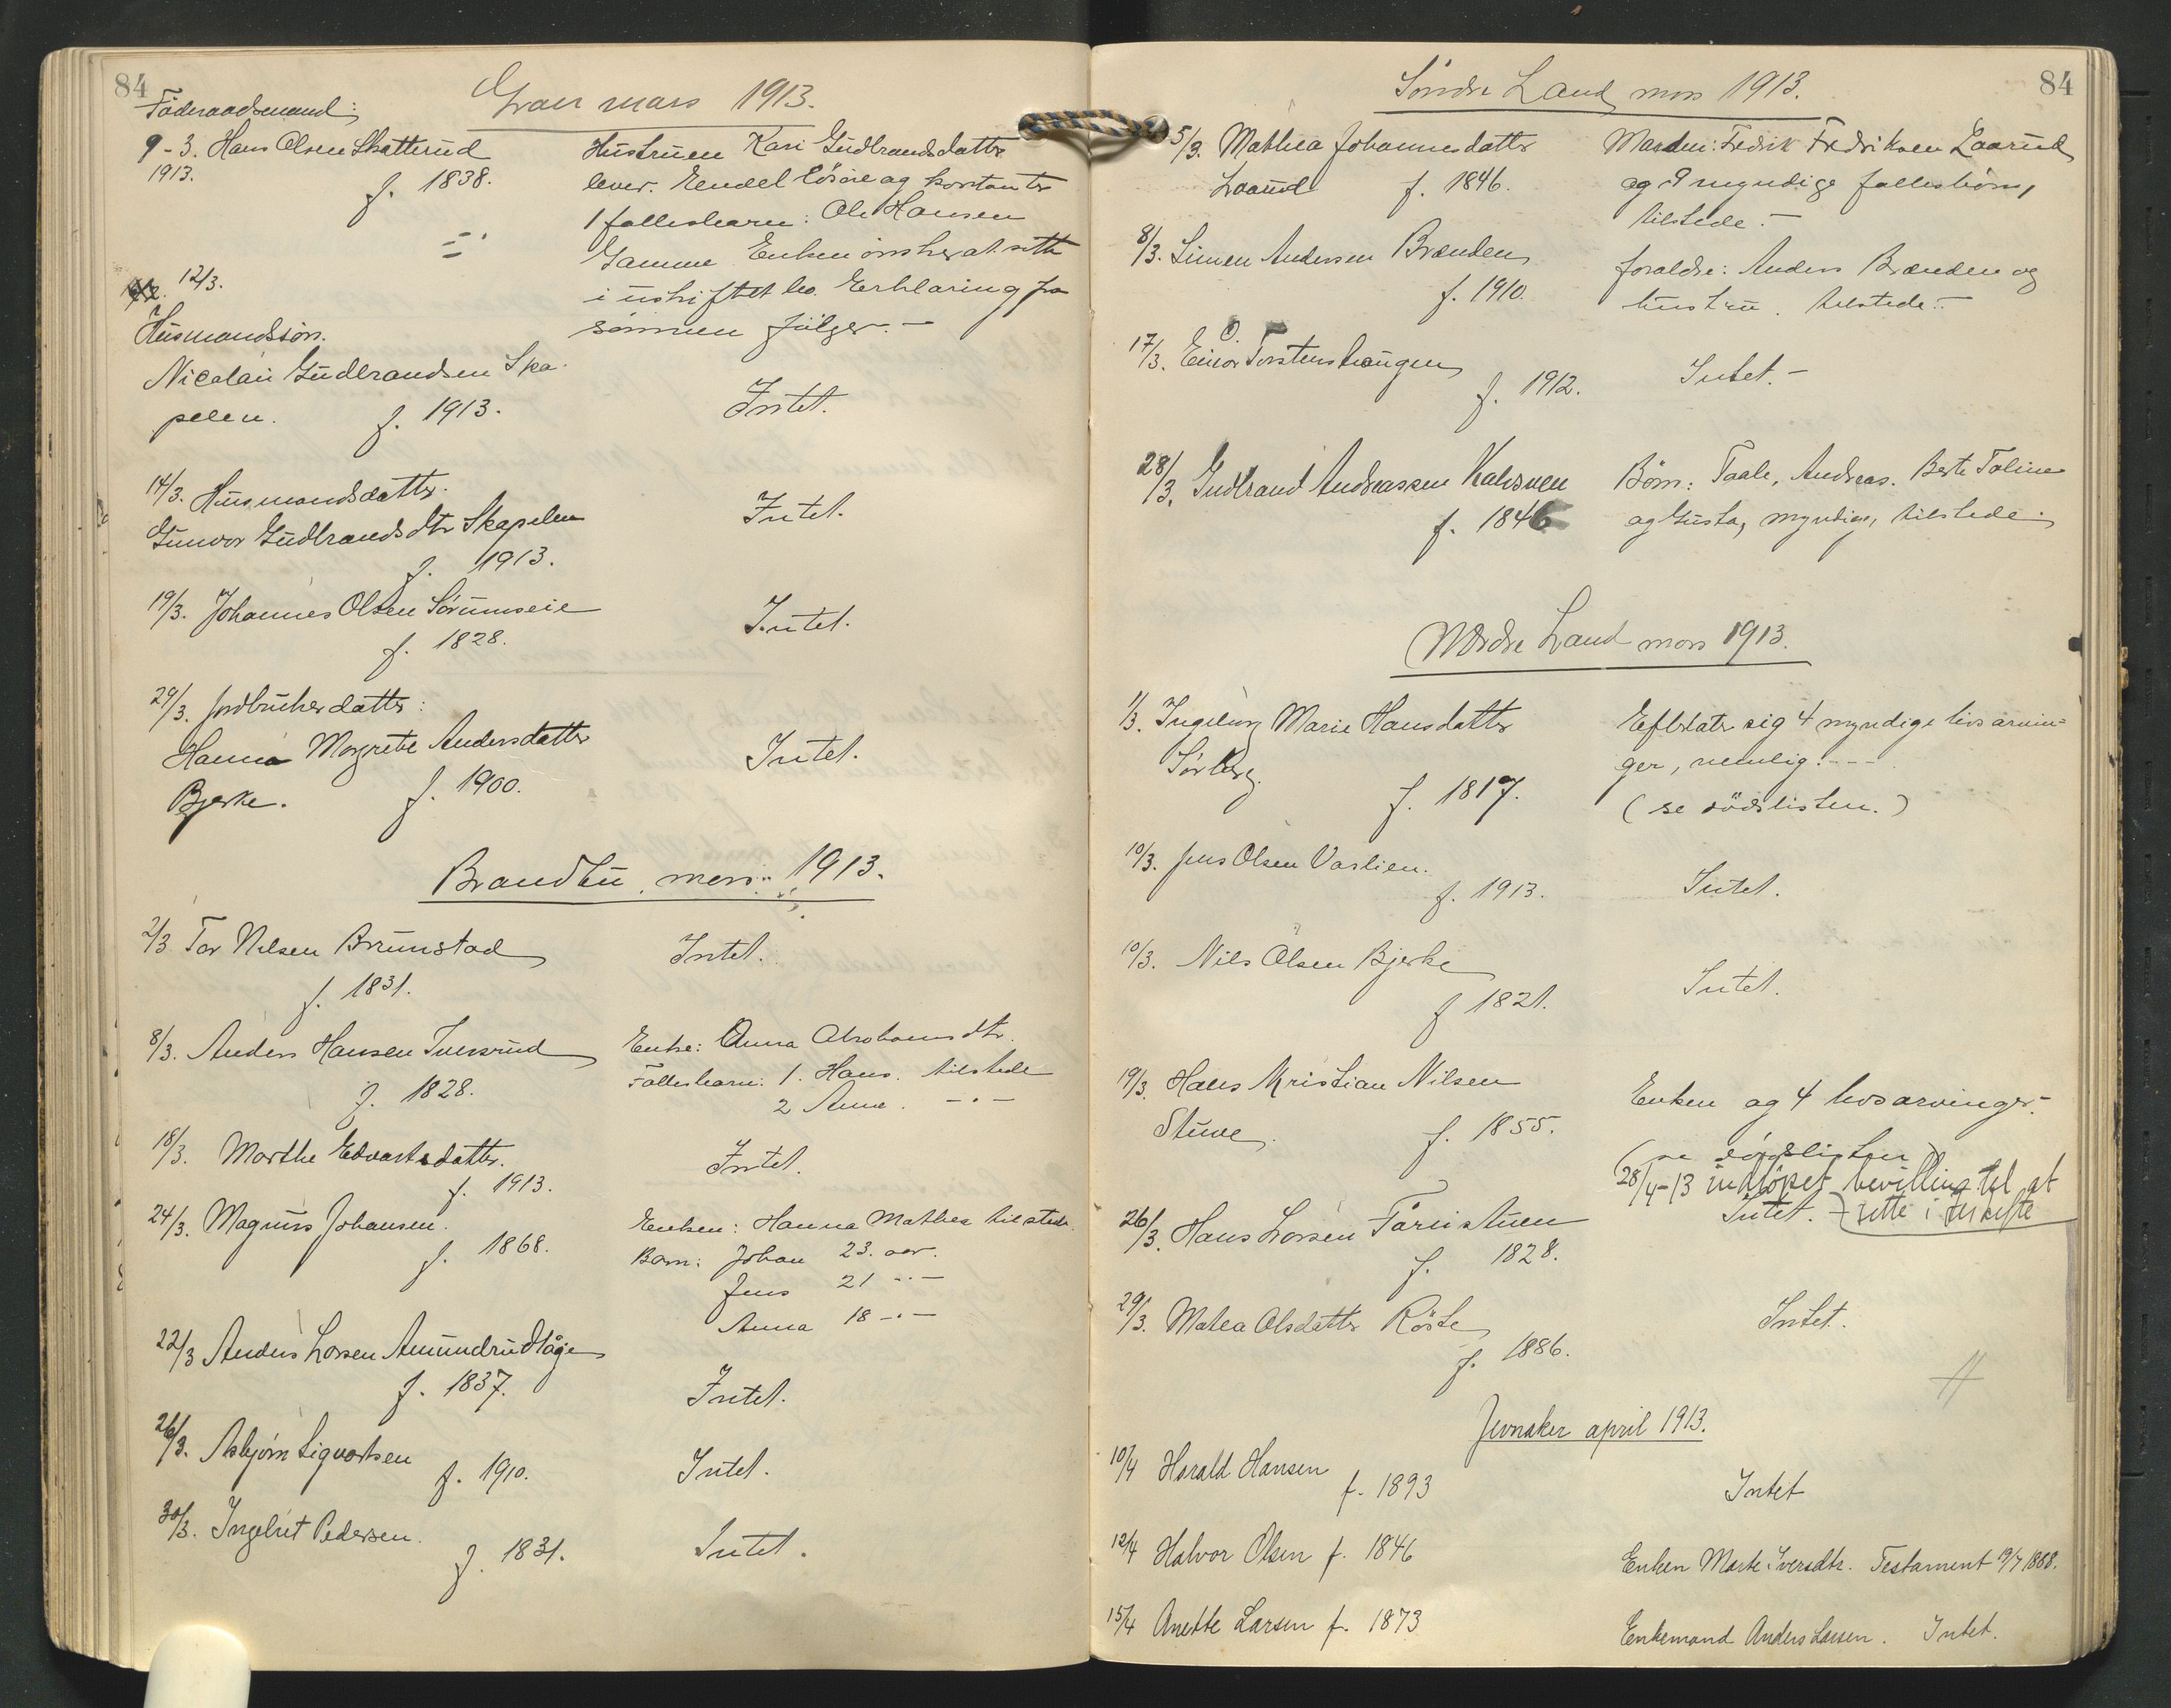 84
Gran mars 1913.
Föderaadsmand:
9-3. Hans Olsen Skatterud
1913.
f. 1838.
Hustruen Kari Gudbrandsdatter
lever. Eendel lösöre og kontanter
1 fellesbarn: Ole Hansen
Gamme Enken önsker at sitte
i uskiftet bo. Erklæring fra
sönnen fölger. -
12/3.
Husmandssön.
Nicolai Gudbrandsen Ska-
pelen. f. 1913.
Intet.
14/3. Husmandsdatter.
Gunvor Gudbrandsdtr Skapelen
f. 1913.
Intet.
19/3. Johannes Olsen Sörumseie
f. 1828.
Intet.
29/3. Jordbrukerdatter:
Hanna Margrete Andersdatter
Bjerke. f. 1900.
Intet.
Brandbu mars 1913.
2/3 Tor Nilsen Brunstad
f. 1831.
Intet.
8/3. Anders Hansen Iversrud
f. 1828.
Enke: Anna Abrahamsdtr.
Fellesbarn: 1. Hans. tilstede
2 Anne. -"-
18/3. Marthe Edvartsdatter.
f. 1913.
Intet.
24/3. Magnus Johansen.
f. 1868.
Enken: Hanna Mathea tilstede.
Barn: Johan 23. aar.
Jens 21 -"-
Anna 18 -"-
22/3 Anders Larsen Amundrudlåge
f. 1837.
Intet.
26/3. Asbjörn Sigvartsen
f. 1910.
Intet.
30/3. Ingebret Pedersen.
f. 1831.
Intet.
84
Söndre Land mars 1913.
5/3. Mathea Johannesdatter
Laarud f. 1846.
Manden: Fredrik Fredriksen Laarud
og 9 myndige fellesbörn,
tilstede. -
8/3. Simen Andersen Brænden
f. 1910.
foraldre: Anders Brænden og
hustru. tilstede. -
17/3. Einar O. Torstenshaugen
f. 1912.
Intet. -
28/3. Gudbrand Andreassen Kalvsuen
f. 1846
Börn: Paale, Andreas. Berte Toline
og Gusta, myndige, tilstede.
Nordre Land mars 1913.
1/3. Ingeborg Marie Hansdatter
Sörberg. f. 1817.
Efterlater sig 4 myndige livsarvin-
ger, nemlig: - - -
(se dödslisten.)
10/3. Jens Olsen Varlien.
f. 1913.
Intet.
10/3. Nils Olsen Bjerke
f 1821.
Intet.
19/3. Hans Kristian Nilsen
Stuve. f. 1855.
Enken og 4 livsarvinger. -
(se dödslisten)
28/4-13 indlöpet bevilling til at
sitte i uskifte
26/3. Hans Larsen
f. 1828.
Intet.
29/3. Matea Olsdatter Röste
f. 1886.
Intet.
Jevnaker april 1913.
10/4 Harald Hansen
f. 1893
Intet
12/4 Halvor Olsen f. 1846
Enken Marte Iversdtr. Testament 19/7 1888.
15/4 Anette Larsen f. 1873
Enkemand Anders Larsen. Intet.